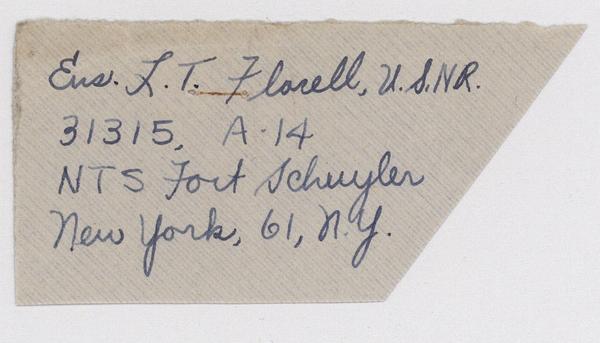 Ens. L. T. Florell, U.S.NR.
31315, A-14
NTS Fort Schuyler
New York, 61, N.Y.